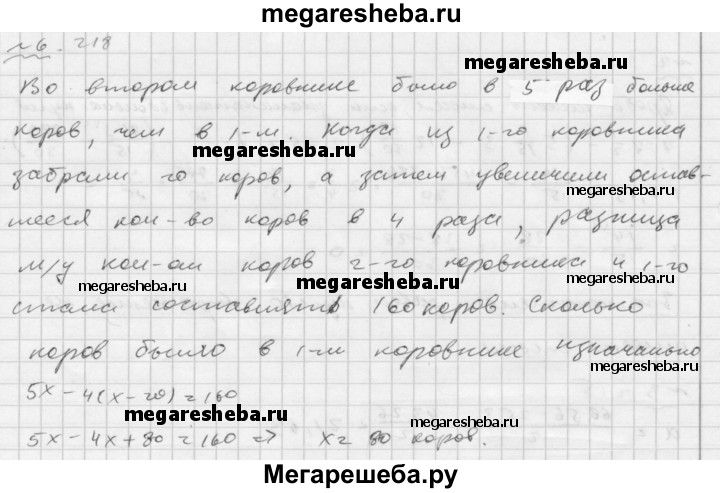 megaresheba.ru
№6.218
Во втором коровнике было в 5 раз больше
megaresheba.ru
коров, чем в 1-м. Когда из 1-го коровника
megaresheba.ru
забрали 20 коров, а затем увеличили остав-
megaresheba.ru
шееся кол-во коров в 4 раза, разница
м/у кол-ом коров 2-го коровника и 1-го
megaresheba.ru megaresheba.ru
стала составлять 160 коров. Сколько
коров было в 1-м коровнике изначально
megaresheba.ru
5x - 4(x - 20) = 160
megaresheba.ru
5x - 4x + 80 = 160 => x = 80 коров.
megaresheba.ru
Мегарешеба.ру